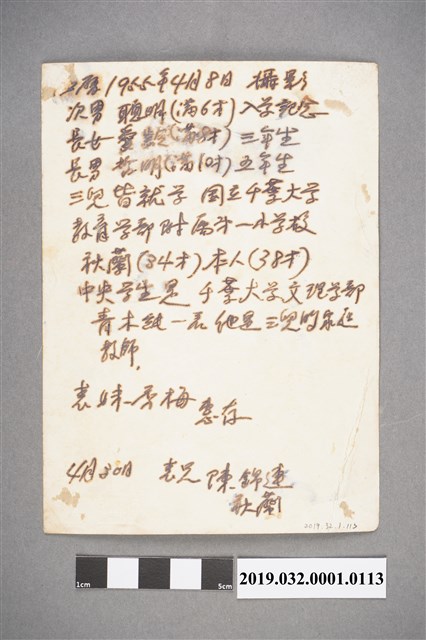 1955年4月8日 攝影
次男 聰明(滿6才)入学記念
長女 (滿8才)三年生
長男 哲明(滿10才)五年生
三兒皆就学 国立千葉大学
教育学部附属第一小学校
秋蘭(34才)本人(38才)
中央学生是 千葉大学文理学部
青木純一君 他是三兒的家庭
教師.
表妹 秀梅 惠存
4月30日 表兄 陳錦連
秋蘭
2019.32.1.113
1cm 5cm
2019.032.0001.0113